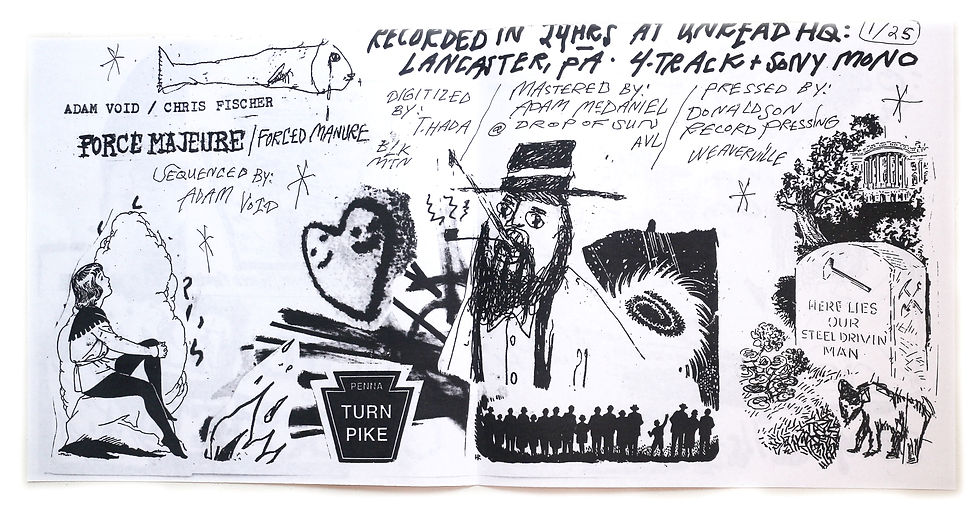 RECORDED IN 24HRS AT UNREAD HQ: 1/25
LANCASTER, PA · 4-TRACK + SONY MONO
ADAM VOID / CHRIS FISCHER
FORCE MAJEURE / FORCED MANURE
SEQUENCED BY:
ADAM VOID
DIGITIZED
BY:
T.HADA
BLK
MTN
MASTERED BY:
ADAM McDANIEL
@ DROP OF SUN
AVL
PRESSED BY:
DONALDSON
RECORD PRESSING
WEAVERVILLE
PENNA
TURN
PIKE
HERE LIES
OUR
STEEL DRIVIN
MAN